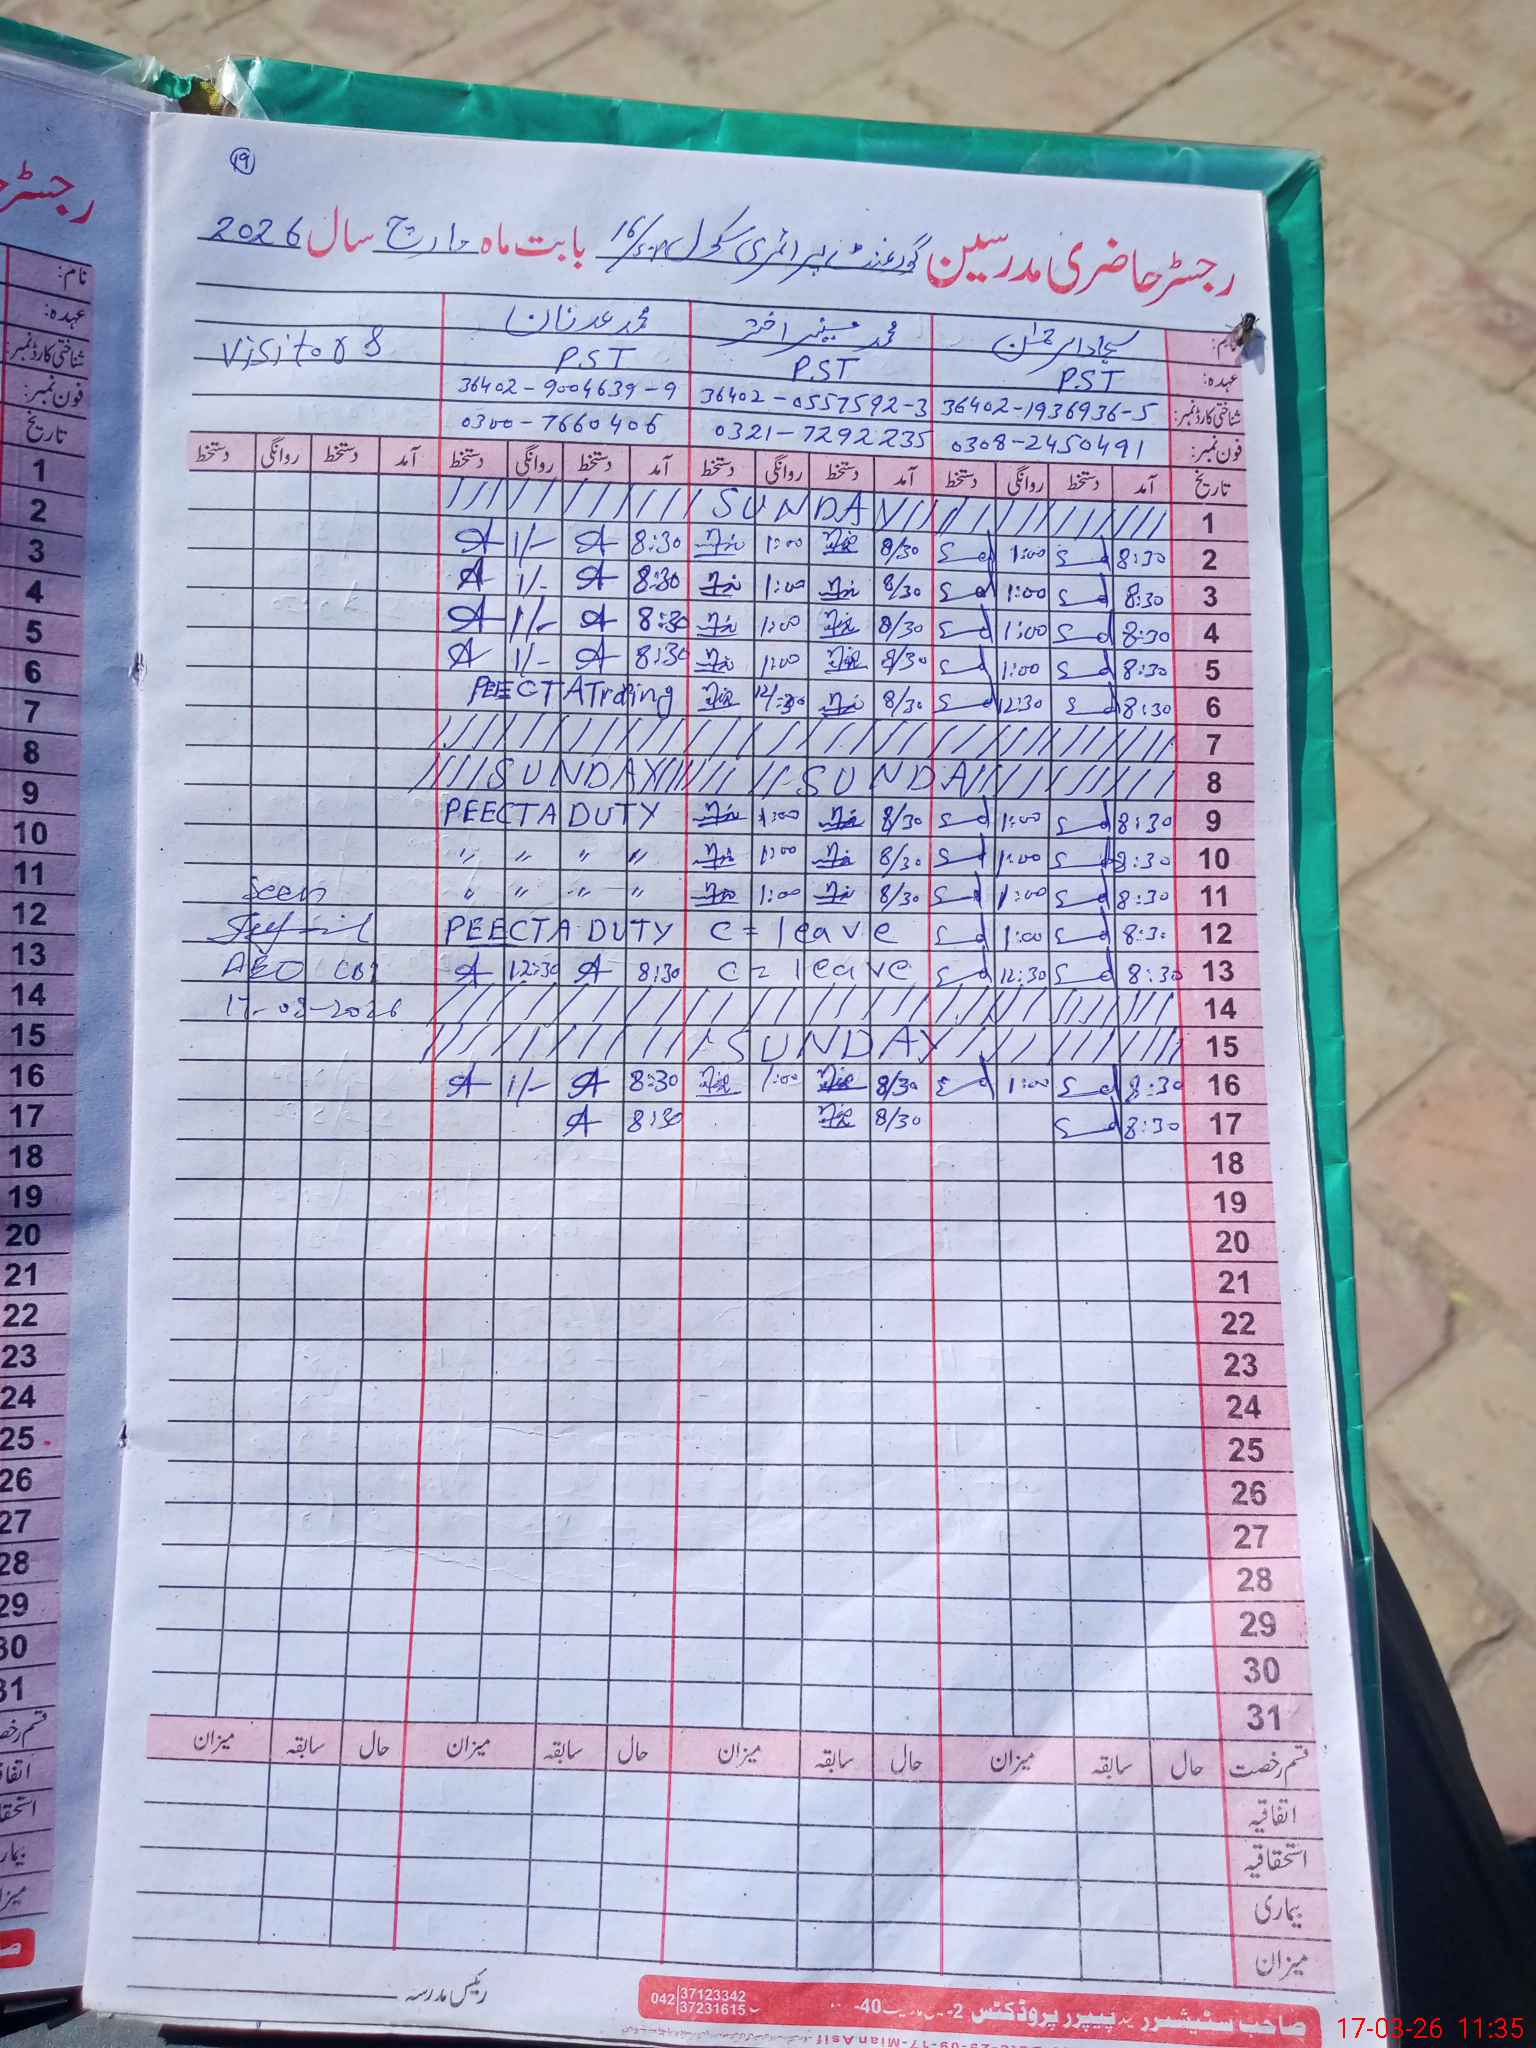 19
رجسٹر حاضری مدرسین گورنمنٹ پرائمری سکول 16/ بابت ماہ مارچ سال 2026
نام: محمد عدنان Visitors
عہدہ: P.ST P.ST P.ST
شناختی کارڈ نمبر: 36402-1936936-5 36402-0557592-3 36402-9004639-9
فون نمبر: 0308-2450491 0321-7292235 0300-7660406
تاریخ آمد دستخط روانگی دستخط آمد دستخط روانگی دستخط آمد دستخط روانگی دستخط آمد دستخط روانگی دستخط
1 SUNDAY
2 8:30 1:00 8/30 1:00 8:30 1/-
3 8:30 1:00 8/30 1:00 8:30 1/-
4 8:30 1:00 8/30 1:00 8:30 1/-
5 8:30 1:00 8/30 1:00 8:30 1/-
6 8:30 12:30 8/30 12/:30 PEECTA Traing
7
8 SUNDAY SUNDA
9 8:30 1:00 8/30 1:00 PEECTA DUTY
10 8:30 1:00 8/30 1:00 〃 〃 〃 〃
11 8:30 1:00 8/30 1:00 〃 〃 〃 〃 Seen
12 8:30 1:00 C = leave PEECTA DUTY
13 8:30 12:30 C = leave 8:30 12:30 AEO
14 17-03-2026
15 SUNDAY
16 8:30 1:00 8/30 1:00 8:30 1/-
17 8:30 8/30 8:30
18
19
20
21
22
23
24
25
26
27
28
29
30
31
قسم رخصت حال سابقہ میزان حال سابقہ میزان حال سابقہ میزان حال سابقہ میزان
اتفاقیہ
استحقاقیہ
بیماری
میزان
رئیس مدرسہ
042 37123342
37231615
17-03-26 11:35
رجسٹر
نام:
عہدہ:
شناختی کارڈ نمبر:
فون نمبر:
تاریخ
1
2
3
4
5
6
7
8
9
10
11
12
13
14
15
16
17
18
19
20
21
22
23
24
25
26
27
28
29
30
31